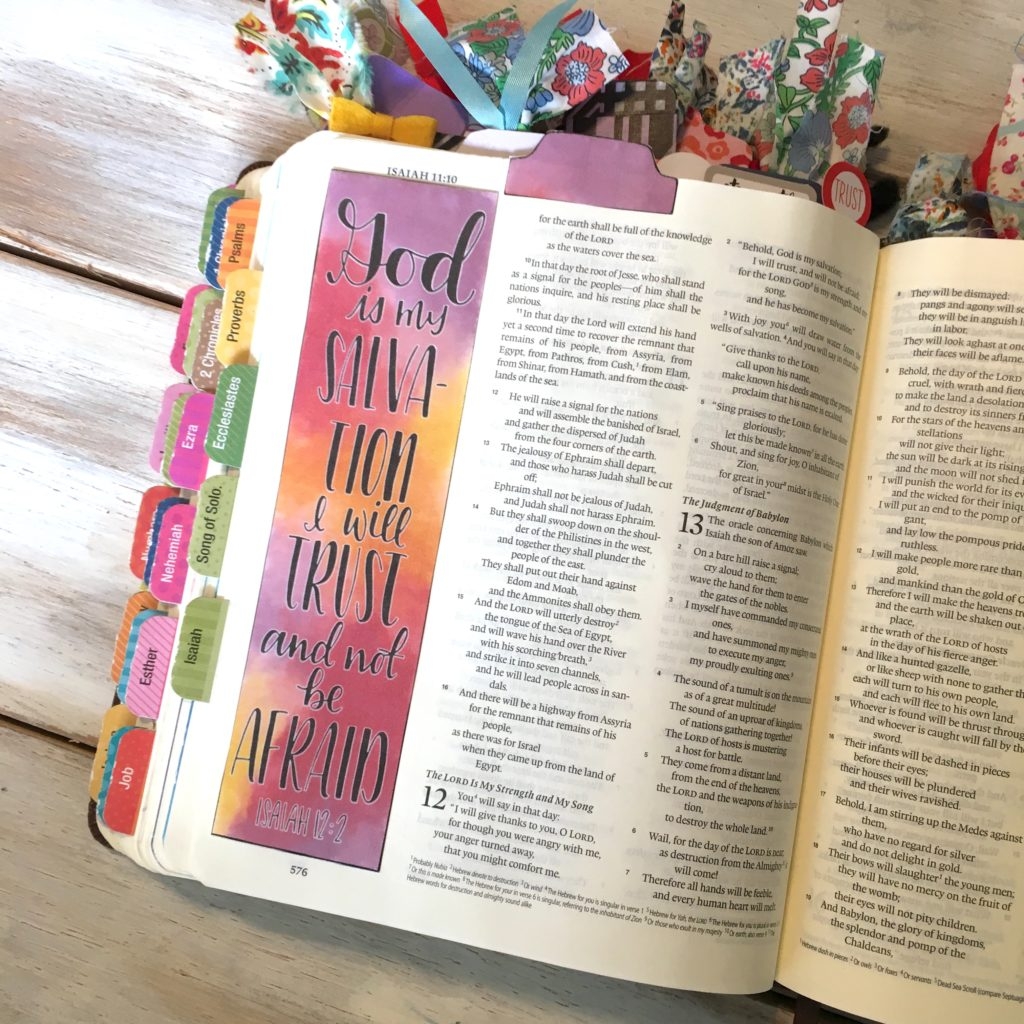 TRUST
ISAIAH 11:10
Psalms
Proverbs
2 Chronicles
Ecclesiastes
Ezra
Song of Solo.
Nehemiah
Isaiah
Esther
Job
God
is my
SALVA-
TION
I will
TRUST
and not
be
AFRAID
ISAIAH 12:2
576
for the earth shall be full of the knowledge
of the LORD
as the waters cover the sea.
10 In that day the root of Jesse, who shall stand
as a signal for the peoples—of him shall the
nations inquire, and his resting place shall be
glorious.
11 In that day the Lord will extend his hand
yet a second time to recover the remnant that
remains of his people, from Assyria, from
Egypt, from Pathros, from Cush,¹ from Elam,
from Shinar, from Hamath, and from the coast-
lands of the sea.
12 He will raise a signal for the nations
and will assemble the banished of Israel,
and gather the dispersed of Judah
from the four corners of the earth.
13 The jealousy of Ephraim shall depart,
and those who harass Judah shall be cut
off;
Ephraim shall not be jealous of Judah,
and Judah shall not harass Ephraim.
14 But they shall swoop down on the shoul-
der of the Philistines in the west,
and together they shall plunder the
people of the east.
They shall put out their hand against
Edom and Moab,
and the Ammonites shall obey them.
15 And the LORD will utterly destroy²
the tongue of the Sea of Egypt,
and will wave his hand over the River
with his scorching breath,³
and strike it into seven channels,
and he will lead people across in san-
dals.
16 And there will be a highway from Assyria
for the remnant that remains of his
people,
as there was for Israel
when they came up from the land of
Egypt.
The LORD Is My Strength and My Song
12 You⁴ will say in that day:
"I will give thanks to you, O LORD,
for though you were angry with me,
your anger turned away,
that you might comfort me.
2 "Behold, God is my salvation;
I will trust, and will not be afraid;
for the LORD GOD⁵ is my strength and my
song,
and he has become my salvation."
3 With joy you⁶ will draw water from the
wells of salvation. 4 And you will say in that day:
"Give thanks to the LORD,
call upon his name,
make known his deeds among the peoples,
proclaim that his name is exalted.
5 "Sing praises to the LORD, for he has done
gloriously;
let this be made known⁷ in all the earth.
6 Shout, and sing for joy, O inhabitant of
Zion,
for great in your⁸ midst is the Holy One
of Israel."
The Judgment of Babylon
13 The oracle concerning Babylon which
Isaiah the son of Amoz saw.
2 On a bare hill raise a signal;
cry aloud to them;
wave the hand for them to enter
the gates of the nobles.
3 I myself have commanded my consecrated
ones,
and have summoned my mighty men
to execute my anger,
my proudly exulting ones.⁹
4 The sound of a tumult is on the mountains
as of a great multitude!
The sound of an uproar of kingdoms,
of nations gathering together!
The LORD of hosts is mustering
a host for battle.
5 They come from a distant land,
from the end of the heavens,
the LORD and the weapons of his indigna-
tion,
to destroy the whole land.¹⁰
6 Wail, for the day of the LORD is near;
as destruction from the Almighty¹¹ it
will come!
7 Therefore all hands will be feeble,
and every human heart will melt.
8 They will be dismayed:
pangs and agony will
they will be in anguish
in labor.
They will look aghast at one
their faces will be aflame.
9 Behold, the day of the LORD
cruel, with wrath and fierce
to make the land a desolation
and to destroy its sinners
10 For the stars of the heavens and
stellations
will not give their light;
the sun will be dark at its rising,
and the moon will not shed
11 I will punish the world for its evil,
and the wicked for their iniquity
I will put an end to the pomp of
gant,
and lay low the pompous pride
ruthless.
12 I will make people more rare than
gold,
and mankind than the gold of
13 Therefore I will make the heavens
and the earth will be shaken out
place,
at the wrath of the LORD of hosts
in the day of his fierce anger.
14 And like a hunted gazelle,
or like sheep with none to gather
each will turn to his own people,
and each will flee to his own land.
15 Whoever is found will be thrust through
and whoever is caught will fall by the
sword.
16 Their infants will be dashed in pieces
before their eyes;
their houses will be plundered
and their wives ravished.
17 Behold, I am stirring up the Medes against
them,
who have no regard for silver
and do not delight in gold.
18 Their bows will slaughter¹ the young men;
they will have no mercy on the fruit of
the womb;
their eyes will not pity children.
19 And Babylon, the glory of kingdoms,
the splendor and pomp of the
Chaldeans,